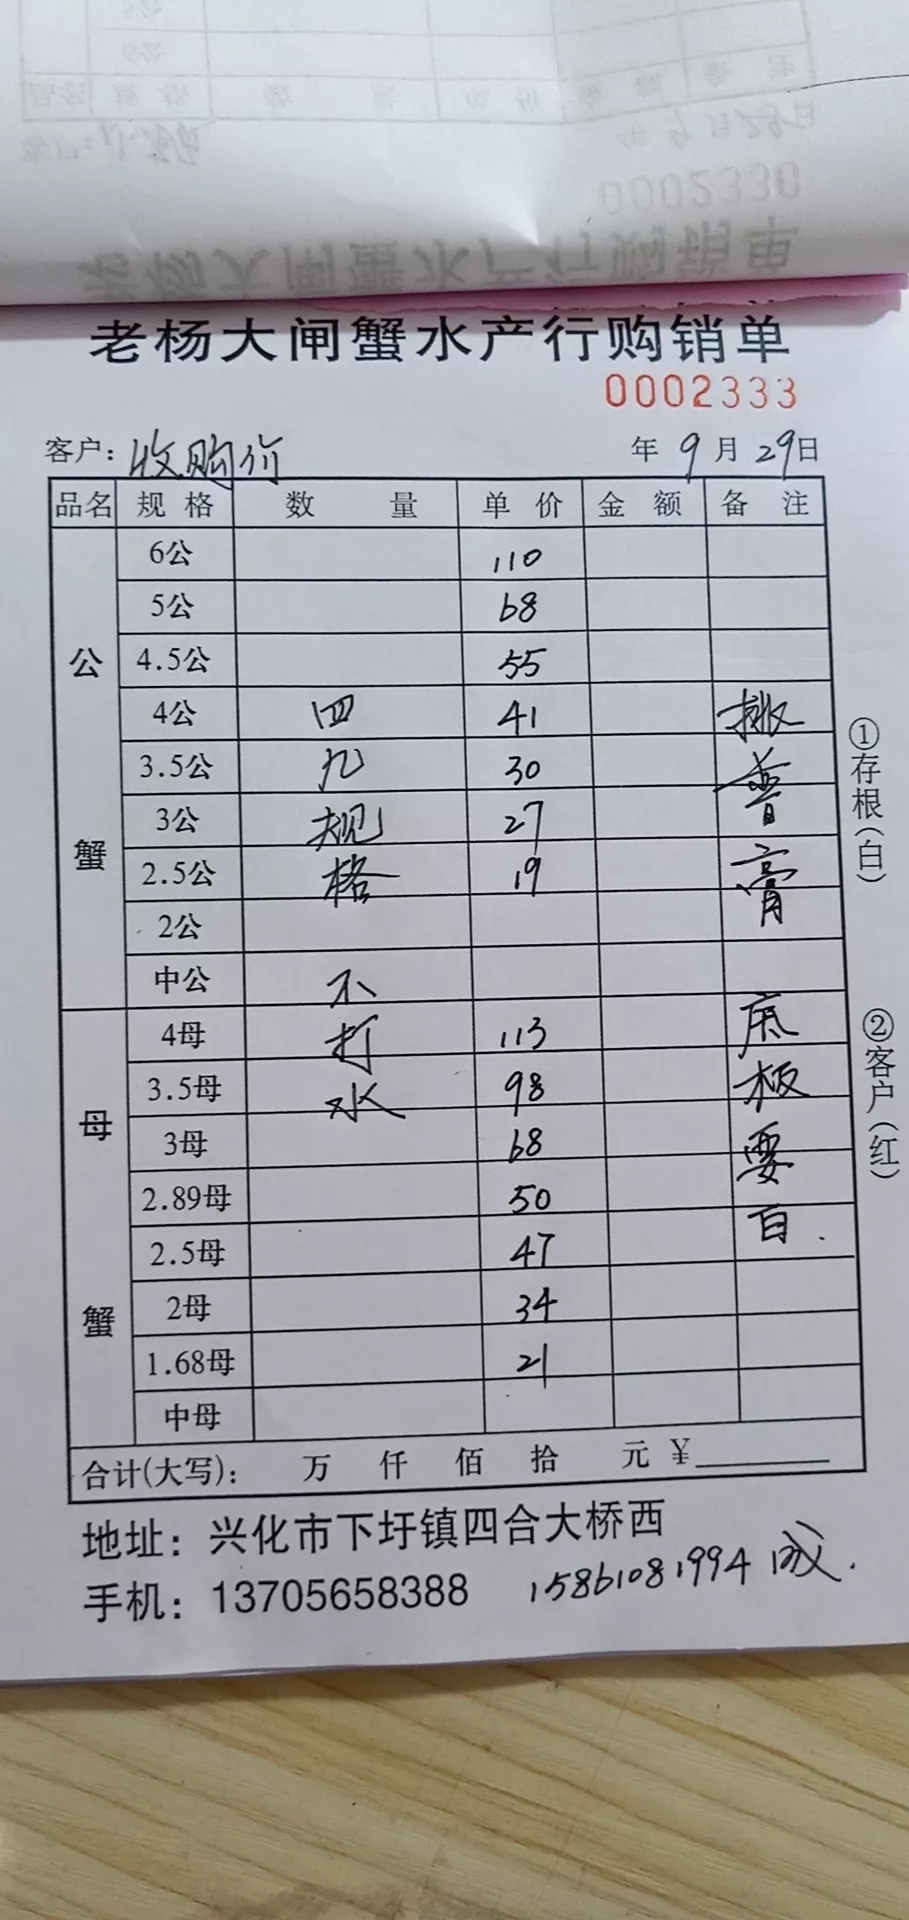 老杨大闸蟹水产行购销单
0002333
客户：收购价 年 9 月 29 日
品名 规格 数量 单价 金额 备注
公蟹
6公 110
5公 68
4.5公 55
4公 41
3.5公 30
3公 27
2.5公 19
2公
中公
母蟹
4母 113
3.5母 98
3母 68
2.89母 50
2.5母 47
2母 34
1.68母 21
中母
四九规格
不打水
膏
底板要白.
①存根(白)
②客户(红)
合计(大写)： 万 仟 佰 拾 元 ¥
地址：兴化市下圩镇四合大桥西
手机：13705658388 15861081994